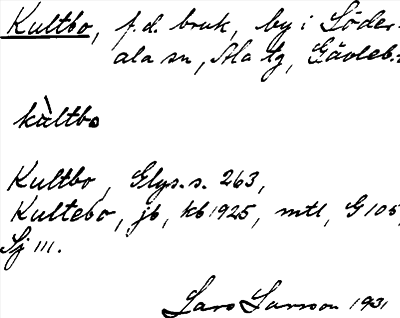 Kultbo, f.d. bruk, by i Söder-
ala sn, Ala tg, Gävleb.:
kùltbo
Kultbo, Glys. s. 263,
Kultebo, jb, kb 1925, mtl, G 105,
Sj 111.
Lars Larsson 1931